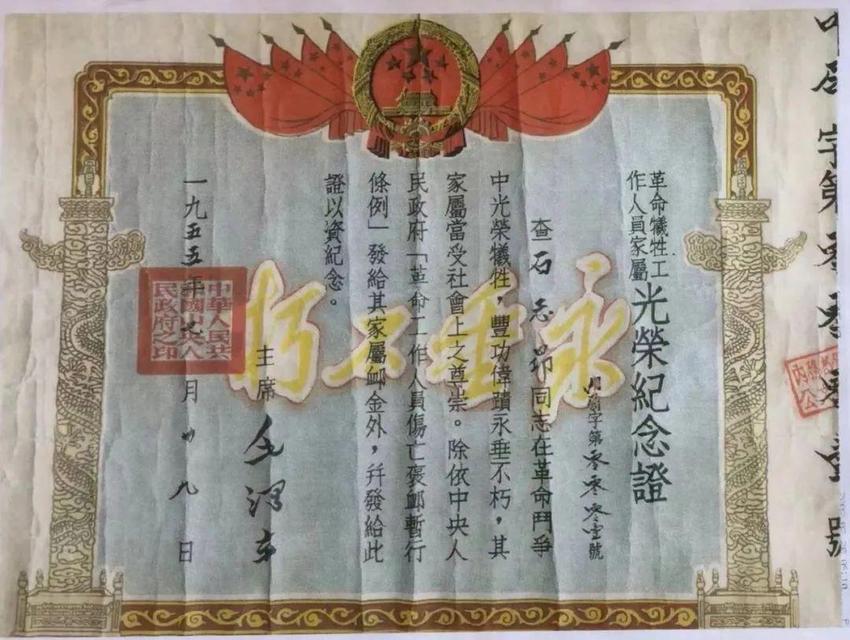 革命犧牲工
作人員家屬
光榮紀念證
字第零零零壹號
查石志昂同志在革命鬥爭
中光榮犧牲，豐功偉蹟永垂不朽，其
家屬當受社會上之尊崇。除依中央人
民政府「革命工作人員傷亡褒卹暫行
條例」發給其家屬卹金外，幷發給此
證以資紀念。
主席 毛澤東
一九五五年 月廿九日
永垂不朽
中華人民共
和國中央人
民政府之印
字第零零零壹號